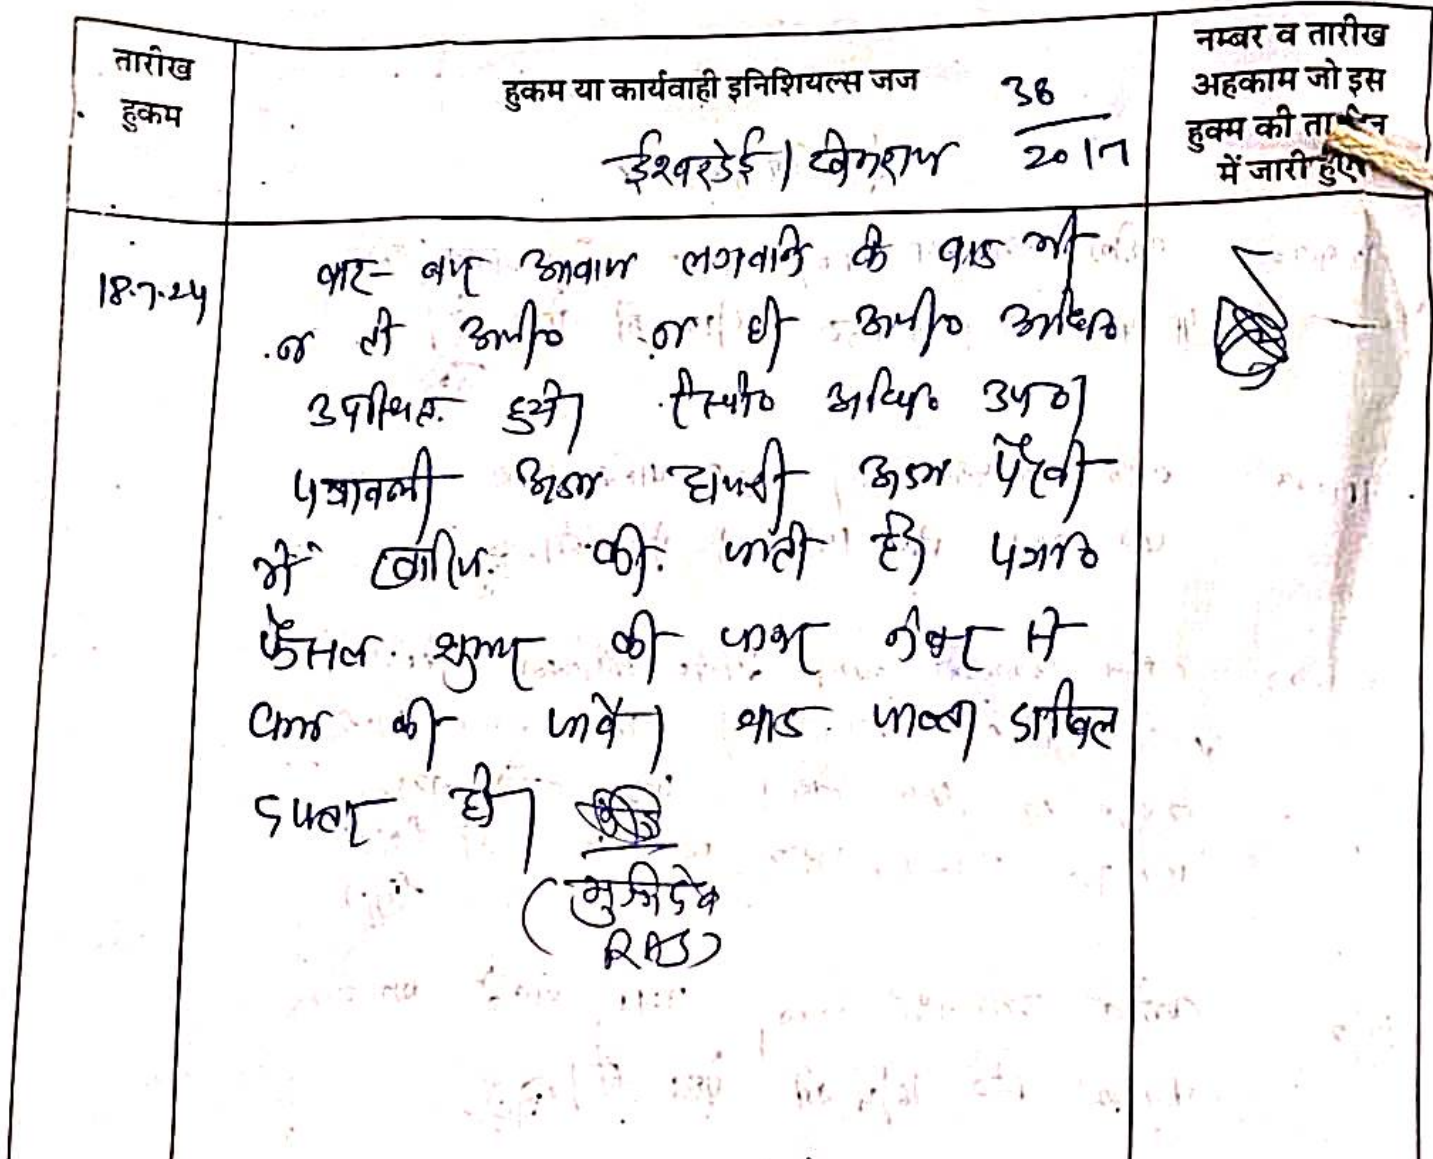 तारीख
हुकम
हुकम या कार्यवाही इनिशियल्स जज
38
2017
ईश्वरदेई / खेमराज
नम्बर व तारीख
अहकाम जो इस
हुक्म की
में जारी हुए
18.7.24
बार-बार आवाज लगवाने के बाद भी
न तो अपी० न ही अपी० अधि०
उपस्थित हुये। रेस्पो० अधि० उप०।
पत्रावली अदम हाजरी अदम पैरवी
में खारिज की जाती है। पत्रा०
फैसल शुमार की जाकर नंबर से
कम की जावे। बाद जाब्ता दाखिल
दफ्तर हो।
RAS)